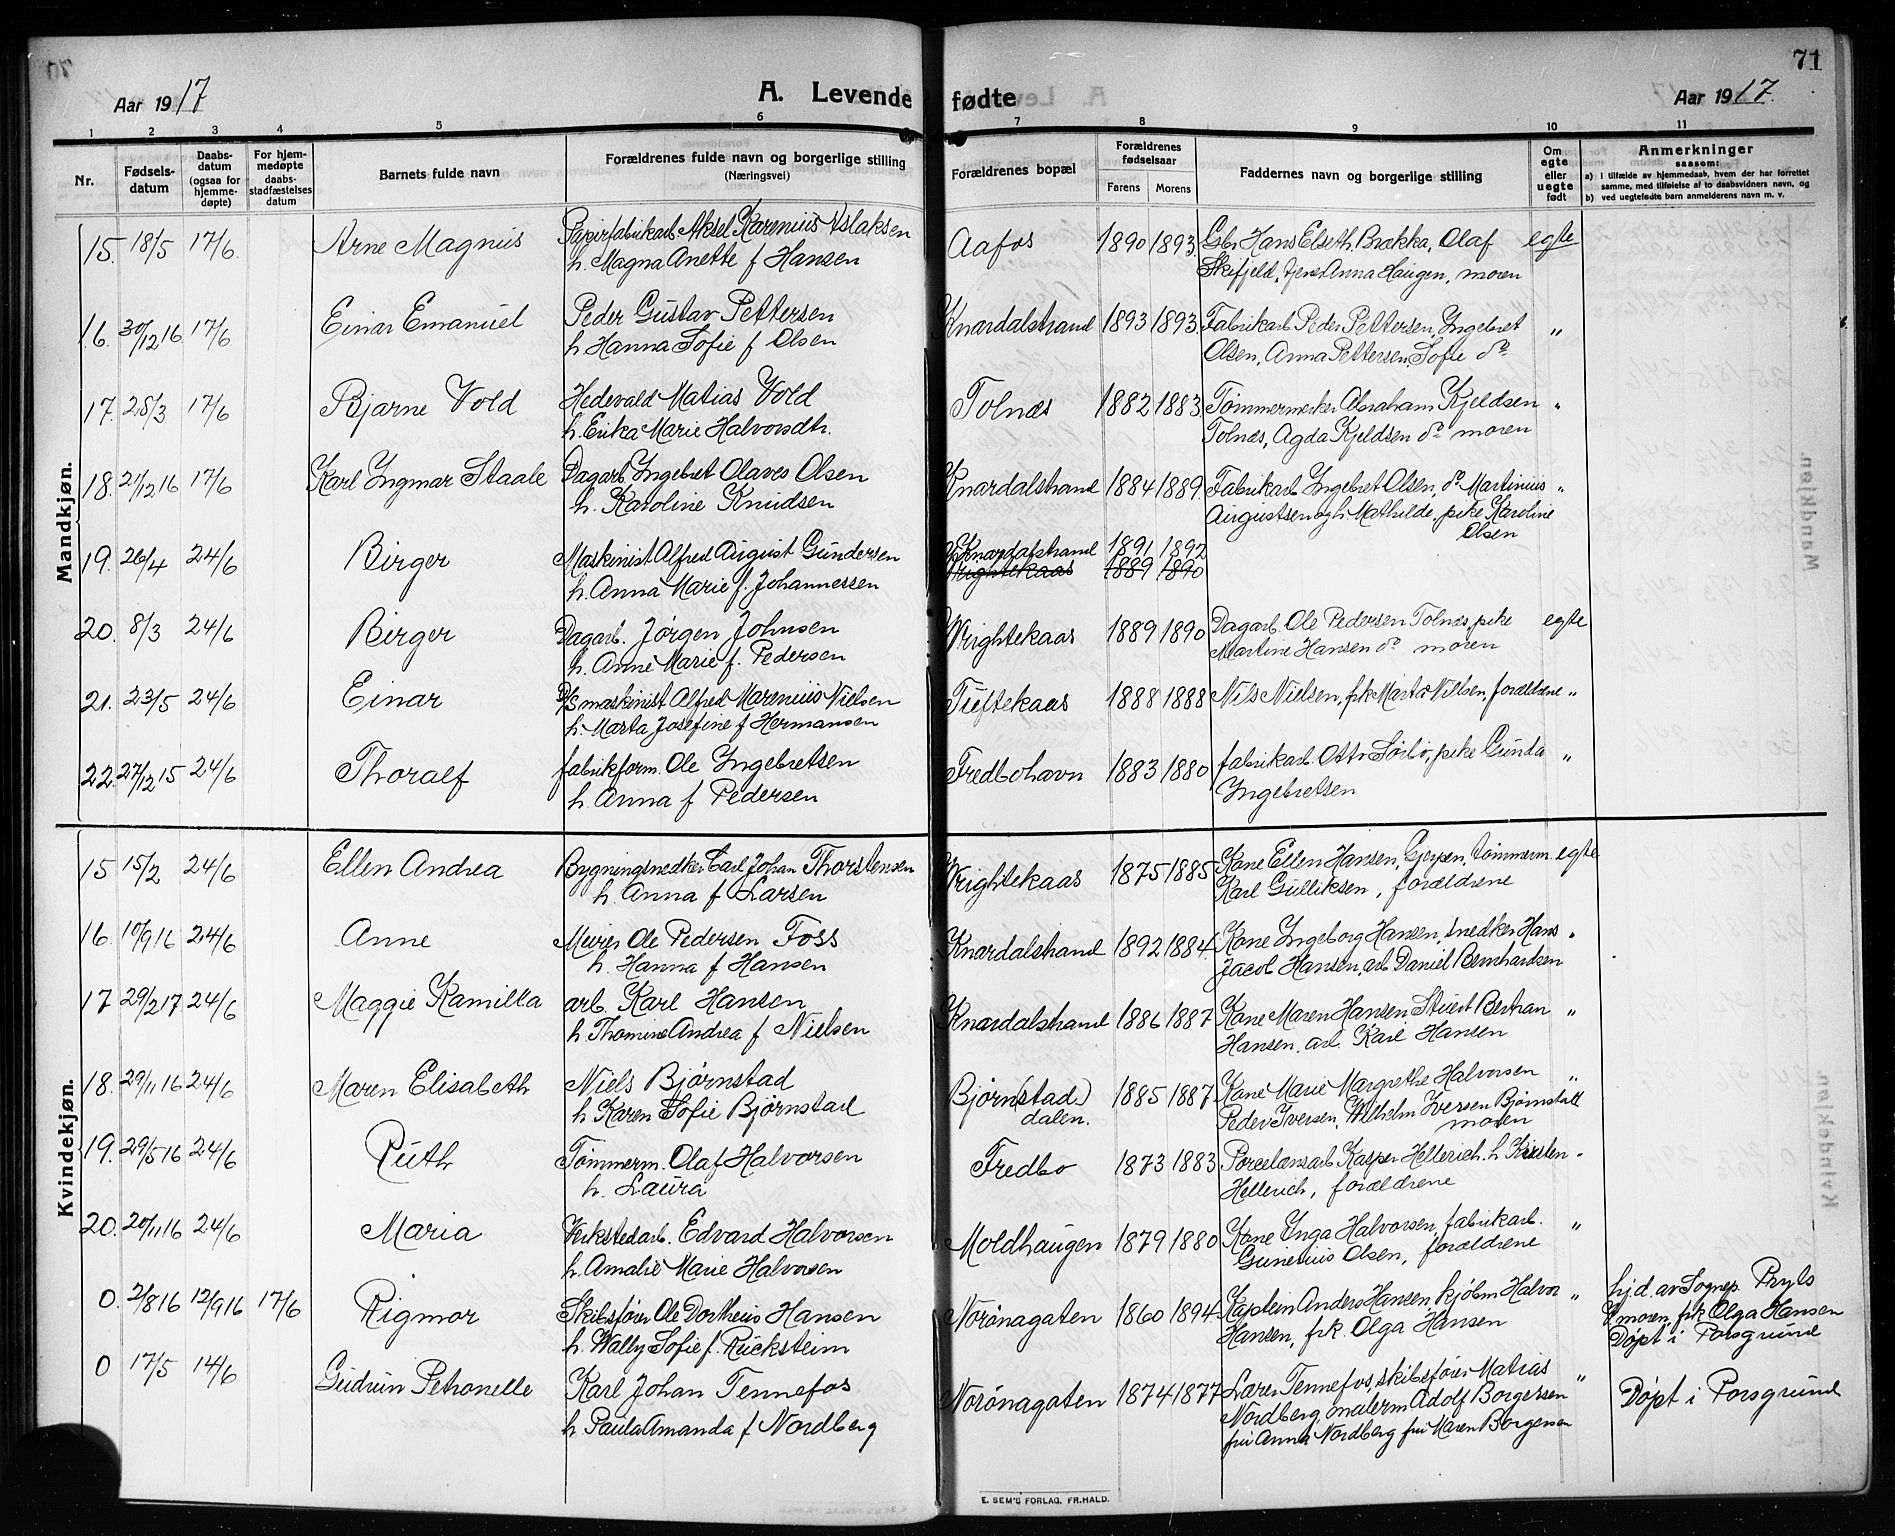 71
Aar 1917 A. Levende fødte Aar 1917.
1 2 3 4 5 6 7 8 9 10 11
Nr. Fødsels-datum Daabs-datum (ogsaa for hjemme-døpte) For hjem-medøpte daabs-stadfæstelses datum Barnets fulde navn Forældrenes fulde navn og borgerlige stilling (Næringsvei) Forældrenes bopæl Forældrenes fødselsaar Farens Morens Faddernes navn og borgerlige stilling Om egte eller uegte født Anmerkninger saasom: a) i tilfælde av hjemmedaab, hvem der har forrettet samme, med tilføielse af to daabsvidners navn, og b) ved uegtefødte barn anmelderens navn m. v.
Mandkjøn.
15. 18/5 17/6. Arne Magnus Papirfabrikarb. Aksel Karenius Aslaksen Aafos 1890 1893 Gbr. Hans Elseth, Brækka, Olaf egte
h. Magna Anette f Hansen Skifjeld, tjener Anna Haugen, moren
16. 30/12 16 17/6 Einar Emanuel Peder Gustav Pettersen Knardalstrand 1893 1893 Fabrikarb Peder Pettersen, Ingebret "
h Hanna Sofie f Olsen Olsen, Anna Pettersen, Sofie do
17. 28/3 17/6 Bjarne Vold Hedevald Matias Vold Tolnæs 1882 1883 Tømmermerker Abraham Kjeldsen "
h. Erika Marie Halvorsdtr. Tolnæs, Agda Kjeldsen do moren
18. 21/12 16 17/6 Karl Ingmar Staale Dagarb. Ingebret Olaves Olsen Knardalstrand 1884 1889 Fabrikarb Ingebret Olsen, do Martinius "
h. Karoline Knudsen Augustsen og h. Mathilde, pike Karoline
Olsen
19. 26/4 24/6 Birger Maskinist Alfred August Gundersen Knardalstrand 1891 1892
h. Anna Marie f. Johannessen Wrightekaas 1889 1890
20. 8/3 24/6 Birger Dagarb. Jørgen Johnsen Wrightekaas 1889 1890 Dagarb. Ole Pedersen Tolnæs, pike egte
h. Anne Marie f. Pedersen Martine Hansen do moren
21. 23/5 24/6 Einar D/S maskinist Alfred Marenius Nielsen Tuftekaas 1888 1888 Nils Nielsen, frk Marta Nilsen, forældrene "
h. Marta Josefine f Hermansen
22. 27/12 15 24/6 Thoralf fabrikform. Ole Ingebretsen Fredbohavn 1883 1880 fabrikarb. Otto Sørbø, pike Gunda "
h. Anna f Pedersen Ingebretsen
Kvindekjøn.
15 15/2 24/6 Ellen Andrea Bygningsnedker Carl Johan Thorstensen Wrightekaas 1875 1885 Kone Ellen Hansen, Gjerpen, tømmerm. egte
h. Anna f Larsen Karl Gulliksen, forældrene
16. 10/9 16 24/6 Anne Murer Ole Pedersen Foss Knardalstrand 1892 1884 Kone Ingeborg Hansen, snedker Hans "
h. Hanna f Hansen Jacob Hansen, arb Daniel Bernhardsen
17 29/2 17 24/6 Maggie Kamilla arb. Karl Hansen Knardalstrand 1886 1887 Kone Maren Hansen Stuert Bertran "
h. Thomine Andrea f Nielsen Hansen, arb. Karl Hansen
18. 29/11 16 24/6 Maren Elisabeth Niels Bjørnstad Bjørn(stad) 1885 1887 Kone Marie Margrethe Halvorsen "
h Karen Sofie Bjørnstad dalen. Peder Iversen, Wilhelm Iversen Bjørnstad
moren
19. 29/5 16 24/6 Ruth Tømmerm. Olaf Halvorsen Fredbo 1873 1883 Porcelænsarb Kasper Hellerich. h. Kirsten "
h. Laura Hellerich, forældrene
20. 20/11 16 24/6 Maria Verkstedarb. Edvard Halvorsen Moldhaugen 1879 1880 Kone Inga Halvorsen, fabrikarb. "
h. Amalie Marie Halvorsen Gunerius Olsen, forældrene
0. 2/8 16 12/9 16 17/6 Rigmor Skibsfører Ole Dortheus Hansen Norønagaten 1860 1894 Kaptein Anders Hansen, kjøbm Halvor " hjd. av Sognep. Pryts
h. Wally Sofie f. Rucksteim Hansen, frk. Olga Hansen moren, frk Olga Hansen
Døpt i Porsgrund
0 17/5 14/6 Gudrun Petronelle Karl Johan Tennefos Norønagaten 1874 1877 Lærer Tennefos, skibsfører Matias " Døpt i Porsgrund
h Paula Amanda f Nordberg Nordberg, malerm Adolf Borgersen
fru Anna Nordberg fru Maren Borgersen
E. SEM'S FORLAG. FR.HALD.